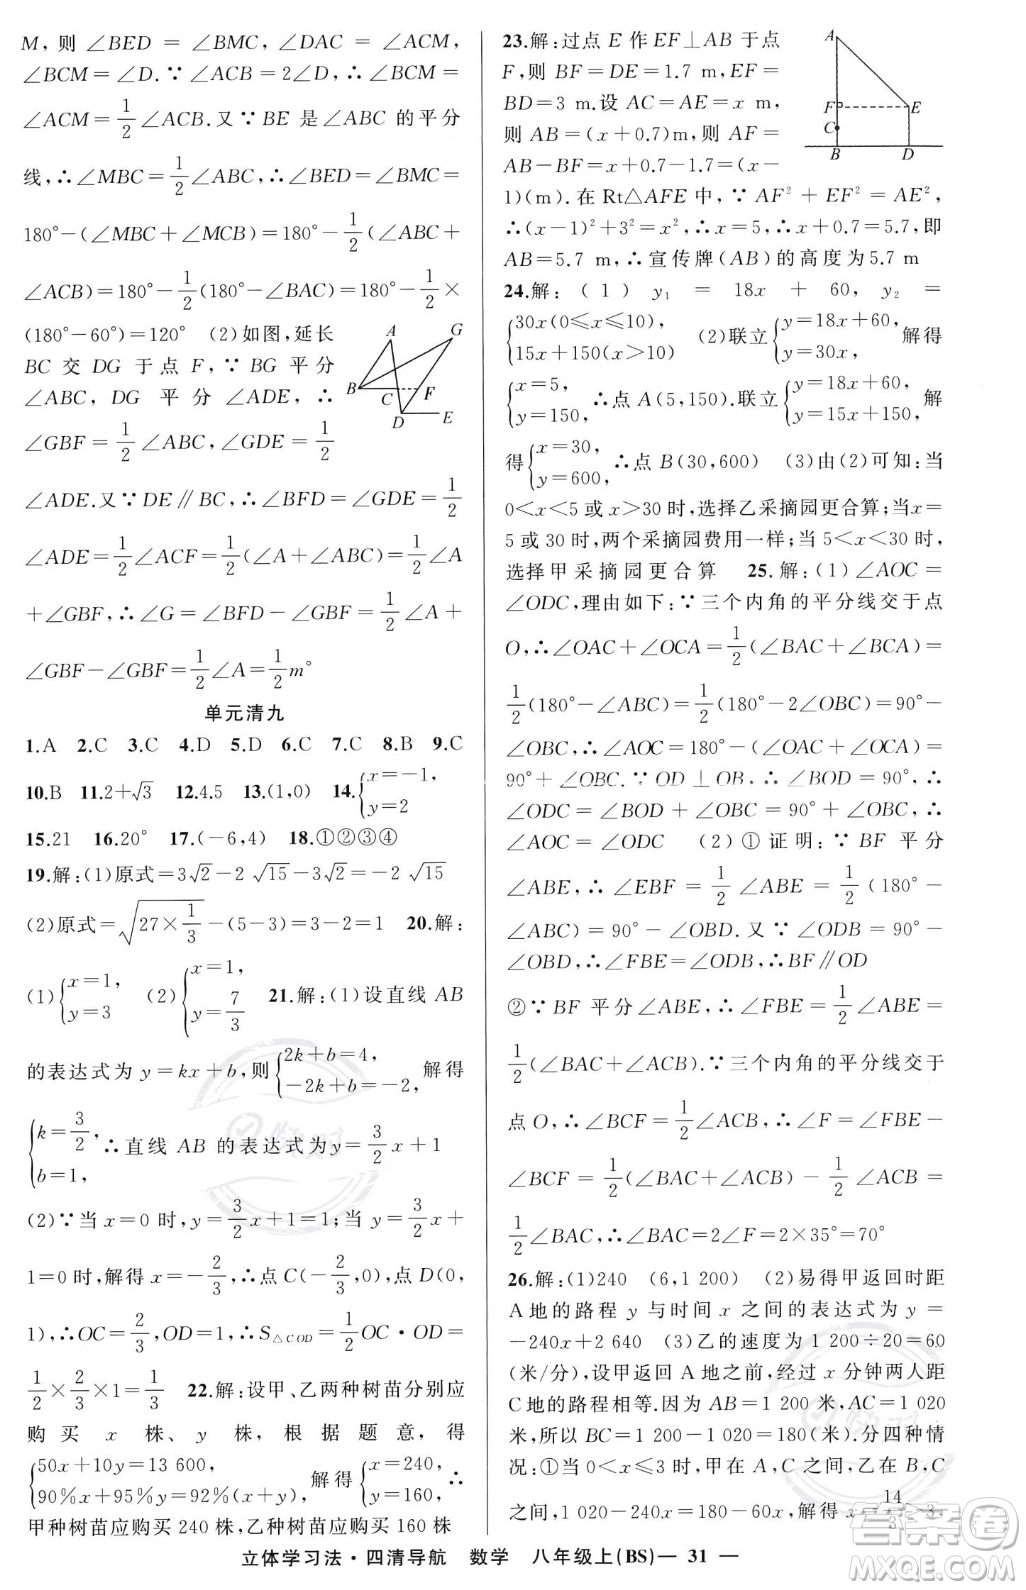 M,则 ∠BED = ∠BMC, ∠DAC = ∠ACM,
∠BCM=∠D.∵∠ACB=2∠D,∴
∠ACM=1/2∠ACB.又∵BE 是∠ABC 的平分
线,∴∠MBC=1/2∠ABC,∴∠BED=∠BMC=
180°-(∠MBC+∠MCB)=180°-1/2(∠ABC+
∠ACB)=180°-1/2(180°-∠BAC)=180°-1/2×
(180°-60°)=120° (2)如图,延长
BC 交 DG 于点 F,∵BG 平分
∠ABC, DG 平分∠ADE, ∴
∠GBF=1/2∠ABC,∠GDE=1/2
∠ADE.又∵DE∥BC,∴∠BFD=∠GDE=1/2
∠ADE=1/2∠ACF=1/2(∠A+∠ABC)=1/2∠A
+∠GBF,∴∠G=∠BFD-∠GBF=1/2∠A+
∠GBF-∠GBF=1/2∠A=1/2m°
A G B C F D E
单元清九
1.A 2.C 3.C 4.D 5.D 6.C 7.C 8.B 9.C
10.B 11.2+√3 12.4.5 13.(1,0) 14.{x=-1, y=2
15.21 16.20° 17.(-6,4) 18.①②③④
19.解:(1)原式=3√2-2√15-3√2=-2√15
(2)原式=√(27×1/3)-(5-3)=3-2=1 20.解:
(1){x=1, y=3 (2){x=1, y=7/3 21.解:(1)设直线 AB
的表达式为 y=kx+b,则{2k+b=4, -2k+b=-2, 解得
{k=3/2, b=1, ∴直线 AB 的表达式为 y=3/2x+1
(2)∵当 x=0 时,y=3/2x+1=1;当 3/2x+
1=0 时,解得 x=-2/3,∴点 C(-2/3,0),点 D(0,
1),∴OC=2/3,OD=1,∴S△COD=1/2OC·OD=
1/2×2/3×1=1/3 22.解:设甲、乙两种树苗分别应
购买 x 株、y 株,根据题意,得
{50x+10y=13 600, 90%x+95%y=92%(x+y), 解得{x=240, y=160, ∴
甲种树苗应购买 240 株,乙种树苗应购买 160 株
23.解:过点 E 作 EF⊥AB 于点
F,则 BF=DE=1.7 m,EF=
BD=3 m.设 AC=AE=x m,
则 AB=(x+0.7)m,则 AF=
AB-BF=x+0.7-1.7=(x-
1)(m).在 Rt△AFE 中,∵AF²+EF²=AE²,
∴(x-1)²+3²=x²,∴x=5,∴x+0.7=5.7,即
AB=5.7 m,∴宣传牌(AB)的高度为 5.7 m
A F E C B D
24.解:(1) y₁ = 18x + 60, y₂ =
{30x(0≤x≤10), 15x+150(x>10) (2)联立{y=18x+60, y=30x, 解得
{x=5, y=150, ∴点 A(5,150).联立{y=18x+60, y=15x+150, 解
得{x=30, y=600, ∴点 B(30,600) (3)由(2)可知:当
0<x<5 或 x>30 时,选择乙采摘园更合算;当 x=
5 或 30 时,两个采摘园费用一样;当 5<x<30 时,
选择甲采摘园更合算 25.解:(1)∠AOC=
∠ODC,理由如下:∵三个内角的平分线交于点
O,∴∠OAC+∠OCA=1/2(∠BAC+∠BCA)=
1/2(180°-∠ABC)=1/2(180°-2∠OBC)=90°-
∠OBC,∴∠AOC=180°-(∠OAC+∠OCA)=
90°+∠OBC.∵OD⊥OB,∴∠BOD=90°,∴
∠ODC=∠BOD+∠OBC=90°+∠OBC,∴
∠AOC=∠ODC (2)①证明:∵BF 平分
∠ABE,∴∠EBF=1/2∠ABE=1/2(180°-
∠ABC)=90°-∠OBD.又∵∠ODB=90°-
∠OBD,∴∠FBE=∠ODB,∴BF∥OD
②∵BF 平分∠ABE,∴∠FBE=1/2∠ABE=
1/2(∠BAC+∠ACB).∵三个内角的平分线交于
点 O,∴∠BCF=1/2∠ACB,∴∠F=∠FBE-
∠BCF=1/2(∠BAC+∠ACB)-1/2∠ACB=
1/2∠BAC,∴∠BAC=2∠F=2×35°=70°
26.解:(1)240 (6,1 200) (2)易得甲返回时距
A 地的路程 y 与时间 x 之间的表达式为 y=
-240x+2 640 (3)乙的速度为 1 200÷20=60
(米/分),设甲返回 A 地之前,经过 x 分钟两人距
C 地的路程相等.因为 AB=1 200 米,AC=1 020
米,所以 BC=1 200-1 020=180(米).分四种情
况:①当 0<x≤3 时,甲在 A、C 之间,乙在 B、C
之间,1 020-240x=180-60x,解得 x=14/3>3,
立体学习法·四清导航 数学 八年级上(BS)— 31 —